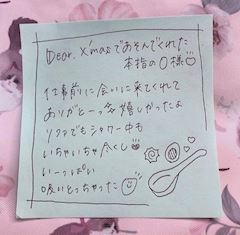 Dear. X'masであそんでくれた
本指の〇様
仕事前に会いに来てくれて
ありがとーっ嬉しかったよ
ソファでもシャワー中も
いちゃいちゃ尽くし
いーっぱい
吸いとっちゃった